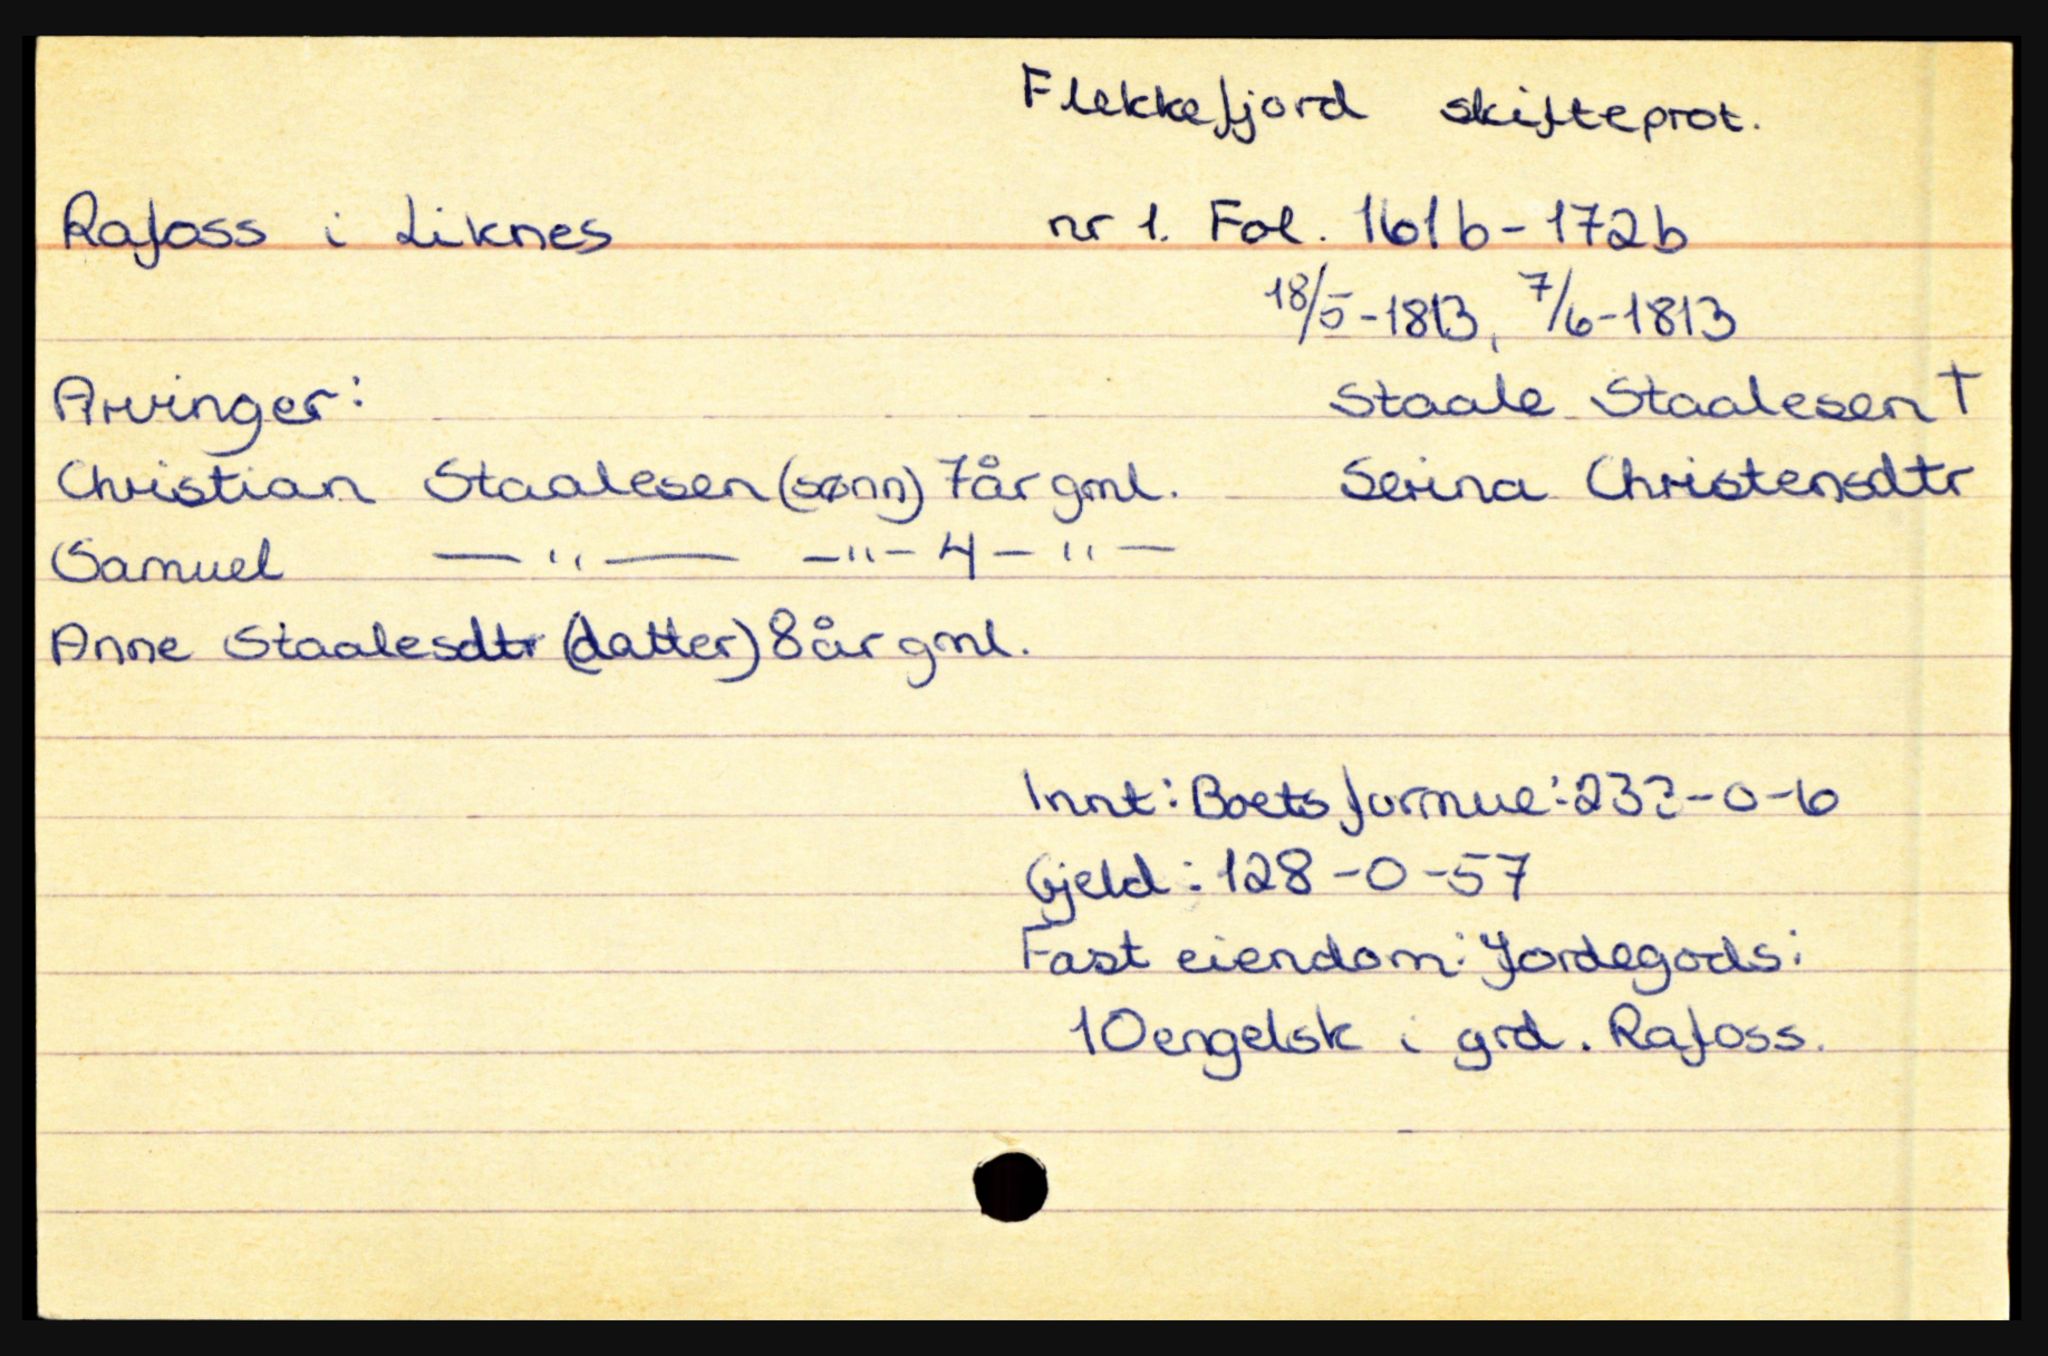 Flekkefjord skifteprot.
Rafoss i Liknes nr 1. Fol. 161b-172b
18/5-1813, 7/6-1813
Arvinger: Staale Staalesen †
Christian Staalesen (sønn) 7år gml. Serina Christensdtr
Samuel —"— -"- 4 -"-
Anne Staalesdtr (datter) 8år gml.
Innt: Boets formue: 232-0-6
Gjeld: 128-0-57
Fast eiendom: Jordegods:
10engelsk i grd. Rafoss.